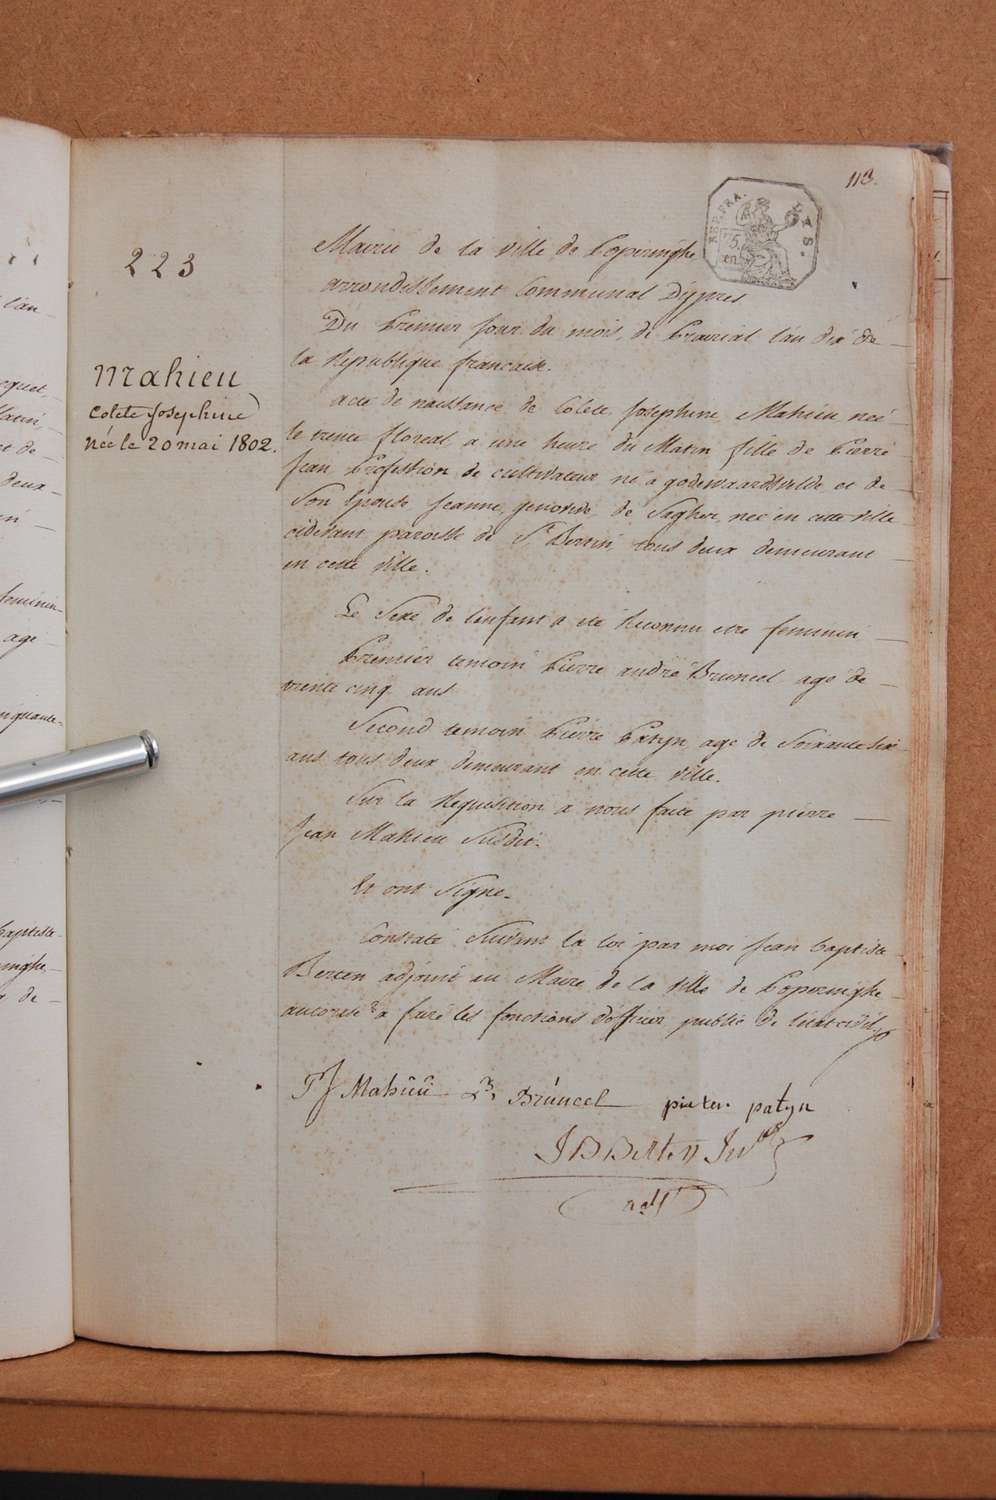 113.
REP. FRA.
LYS.
75.
en
223
Mahieu
Colete Josephine
née le 20 mai 1802.
Mairie de la Ville de Poperinghe
arrondissement Communal D'ypres
Du Premier jour du mois de Prairial l'an dix de
la Republique francaise.
acte de naissance de Colete Josephine Mahieu neé
le trente floreal a une heure du Matin fille de Pierre
Jean Profession de cultivateur né a godewaardsvelde et de
Son Epouse Jeanne genovive de Sagher, neé en cette ville
cidevant paroisse de St Bertin, tous deux demeurant
en cette Ville.
Le Sexe de l'enfant a eté Reconnu etre feminin
Premier temoin Pierre andré Bruncel agé de
trente cinq ans
Second temoin Pierre Patyn agé de Soixante Six
ans tous deux demeurant en cette Ville.
Sur la Requisition a nous faite par pierre
Jean Mahieu Susdit.
Et ont Signé.
Constaté Suivant la loi par moi Jean baptiste
Berten adjoint au Maire de la Ville de Poperinghe
autorisé a faire les fonctions d'officier public de l'état civil.
P J Mahieu Bruncel pieter patyn
J B Berten
adjt